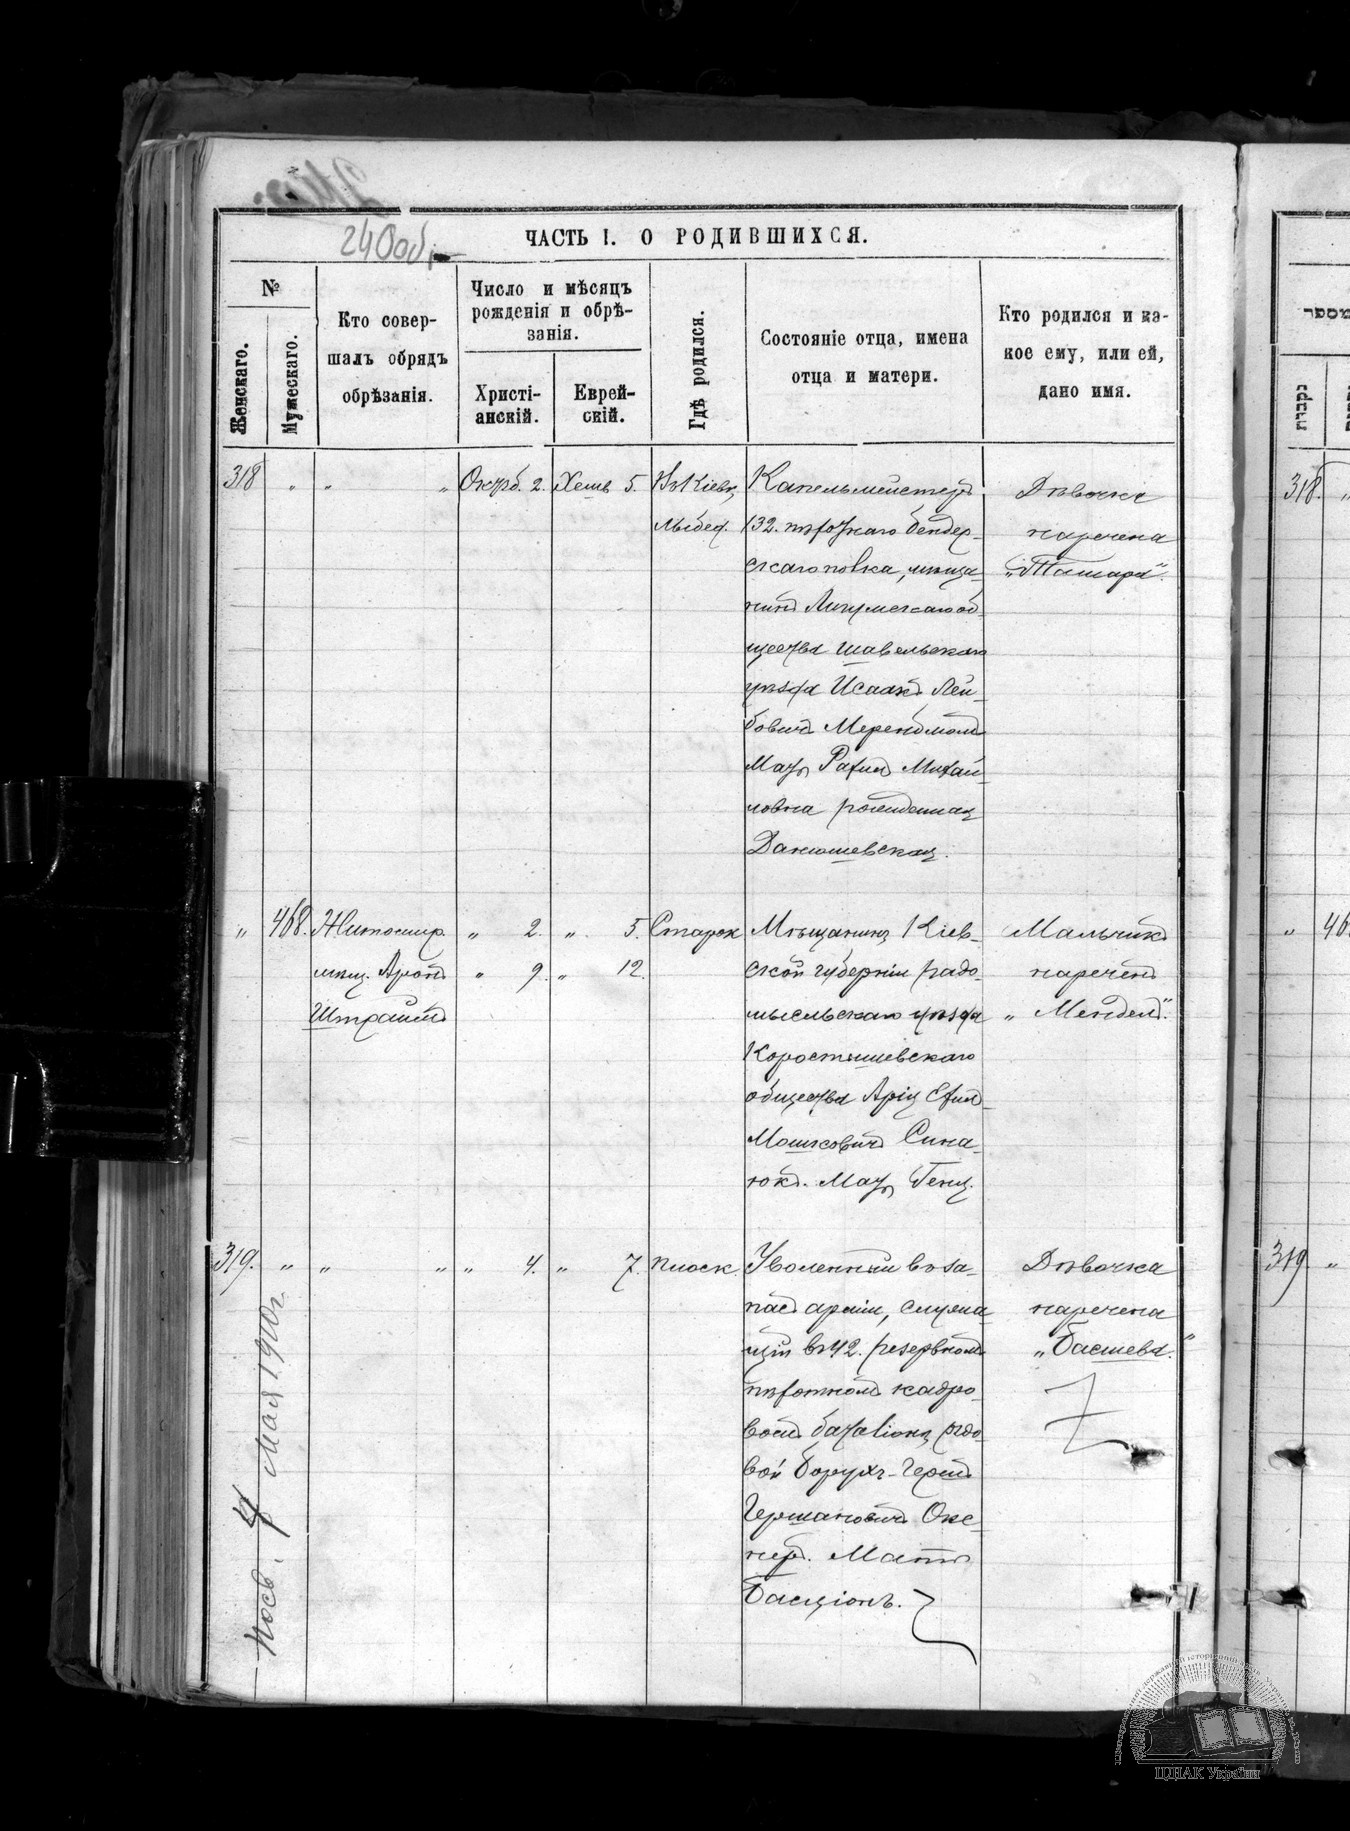 240 об.
ЧАСТЬ I. О РОДИВШИХСЯ.
№
Женскаго.
Мужескаго.
Кто совер-
шалъ обрядъ
обрѣзанія.
Число и мѣсяцъ
рожденія и обрѣ-
занія.
Христі-
анскій.
Еврей-
скій.
Гдѣ родился.
Состояніе отца, имена
отца и матери.
Кто родился и ка-
кое ему, или ей,
дано имя.
318 " " " Октяб. 2. Хешв. 5.
Въ Кіевѣ,
Лыбед.
Капельмейстеръ
132. пѣхотнаго Бендер-
скаго полка, мѣща-
нинъ об-
щества Шавельскаго
уѣзда Исаакъ Лей-
бовичъ
Мать Рахиль Михай-
ловна рожденная
Данюшевская.
Дѣвочка
наречена
„Тамара".
" 468. Житомир.
мѣщ. Аронъ
Штраймъ
" 2. " 5.
" 9. " 12.
Старок
Мѣщанинъ Кіев-
ской губерніи Радо-
мысльскаго уѣзда
Коростышевскаго
общества Арія Ехил-
Мошковичъ Сина-
юкъ. Мать Геня.
Мальчикъ
нареченъ
„Мендель".
319. " " " " 4. " 7. Плоск.
Уволенный въ за-
пасъ арміи, служа-
щій въ 42. резервномъ
пѣхотномъ кадро-
вомъ баталіонѣ рядо-
вой Борухъ-Герш
Гершановичъ Окс-
неръ. Мать
Басціонъ.
Дѣвочка
наречена
„Басшева."
4 Мая 1910 г.
מספר
נקבות
318. "
" 468
319. "
ЦДІАК України